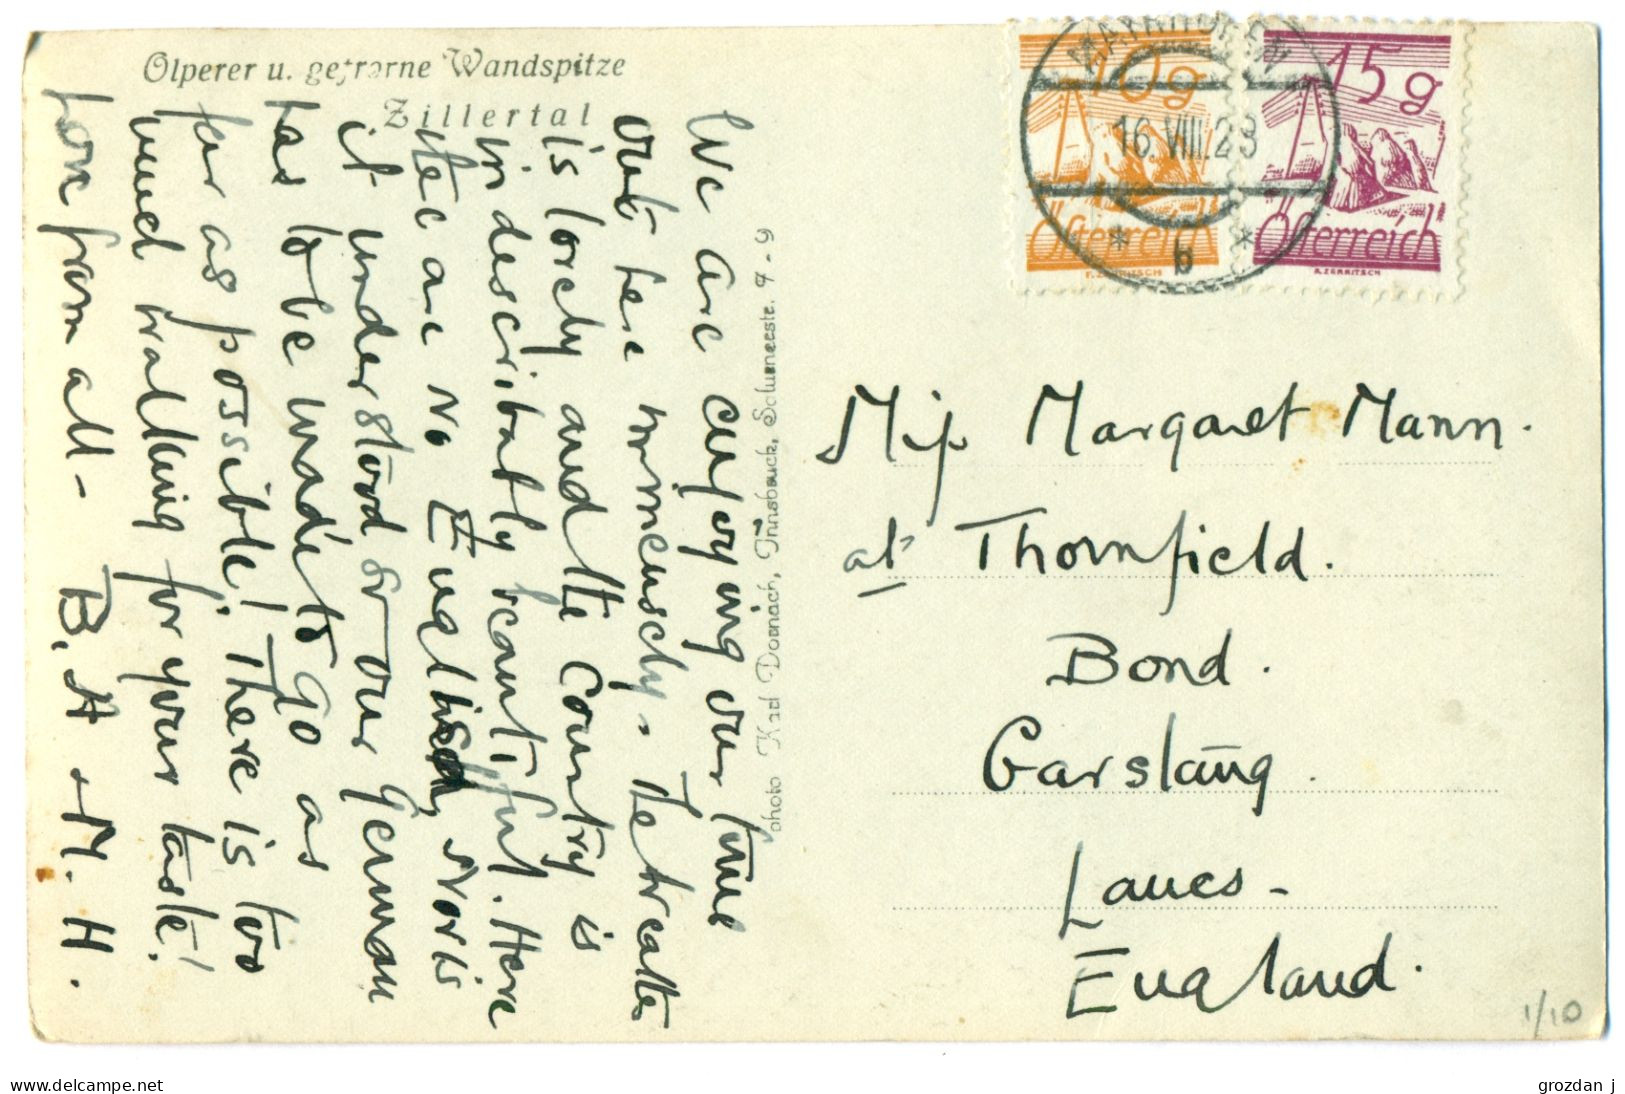 Olperer u. gefrorne Wandspitze
Zillertal
We are enjoying our time
out here immensely. The weather
is lovely and the country is
indescribably beautiful. Here
there are no English, nor is
it understood & our German
has to be made to go as
far as possible! There is too
much walking for your taste!
Love from all - B, A + M. H.
photo Karl Dornach, Innsbruck,
MAYRHOFEN
16.VIII.28
* b *
10 g
Österreich
R. ZERRITSCH
15 g
Österreich
R. ZERRITSCH
Miss Margaret Mann.
at Thornfield.
Bond.
Garstang.
Lancs -
England.
1/10
delcampe.net
grozdan j